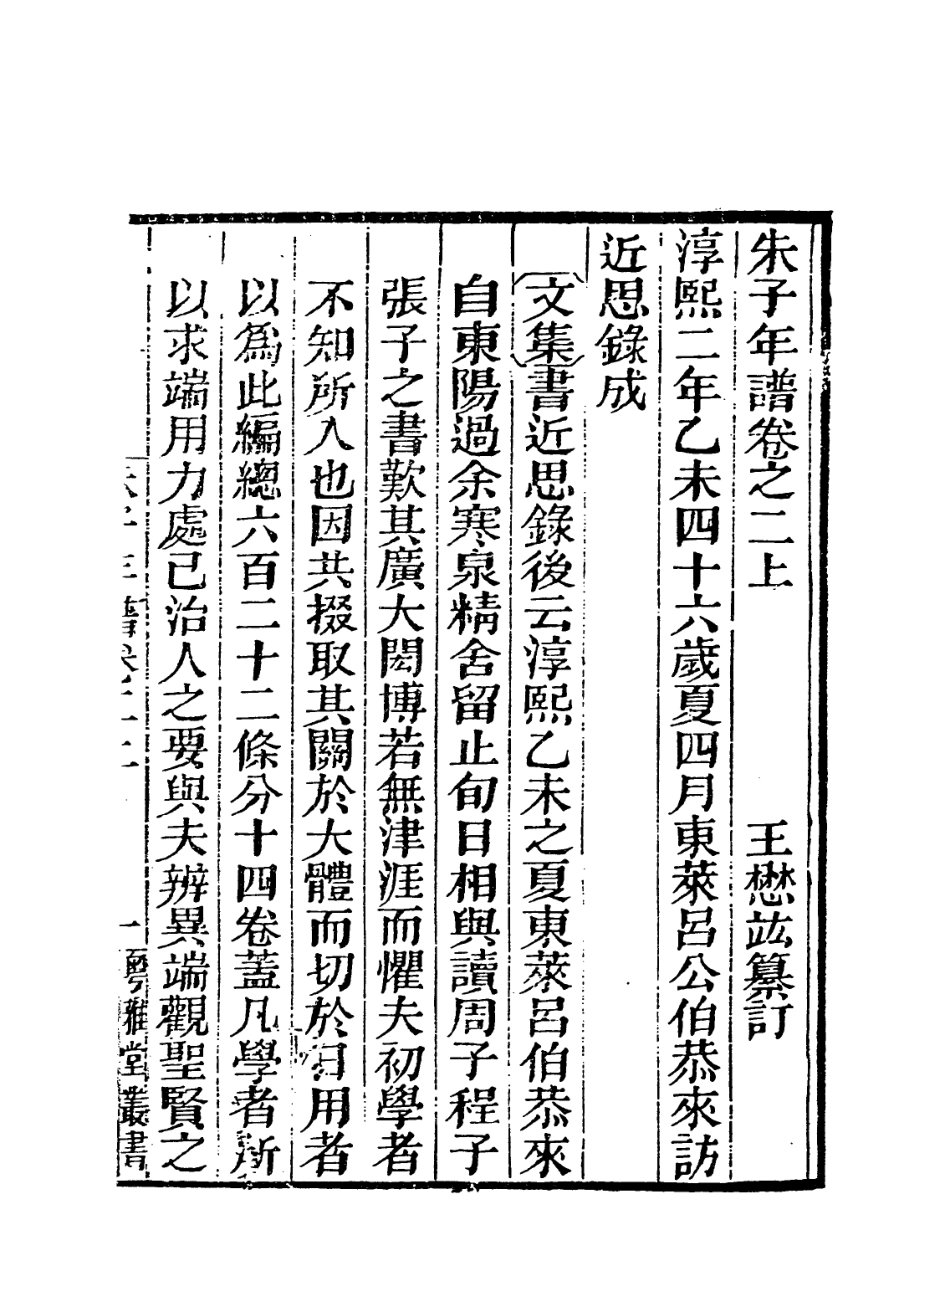 朱子年譜卷之二上 王懋竑纂訂
淳熙二年乙未四十六歲夏四月東萊呂公伯恭來訪
近思錄成
文集書近思錄後云淳熙乙未之夏東萊呂伯恭來
自東陽過余寒泉精舍留止旬日相與讀周子程子
張子之書歎其廣大閎博若無津涯而懼夫初學者
不知所入也因共掇取其關於大體而切於日用者
以爲此編總六百二十二條分十四卷蓋凡學者所
以求端用力處己治人之要與夫辨異端觀聖賢之
朱子年譜卷二上 一 粵雅堂叢書